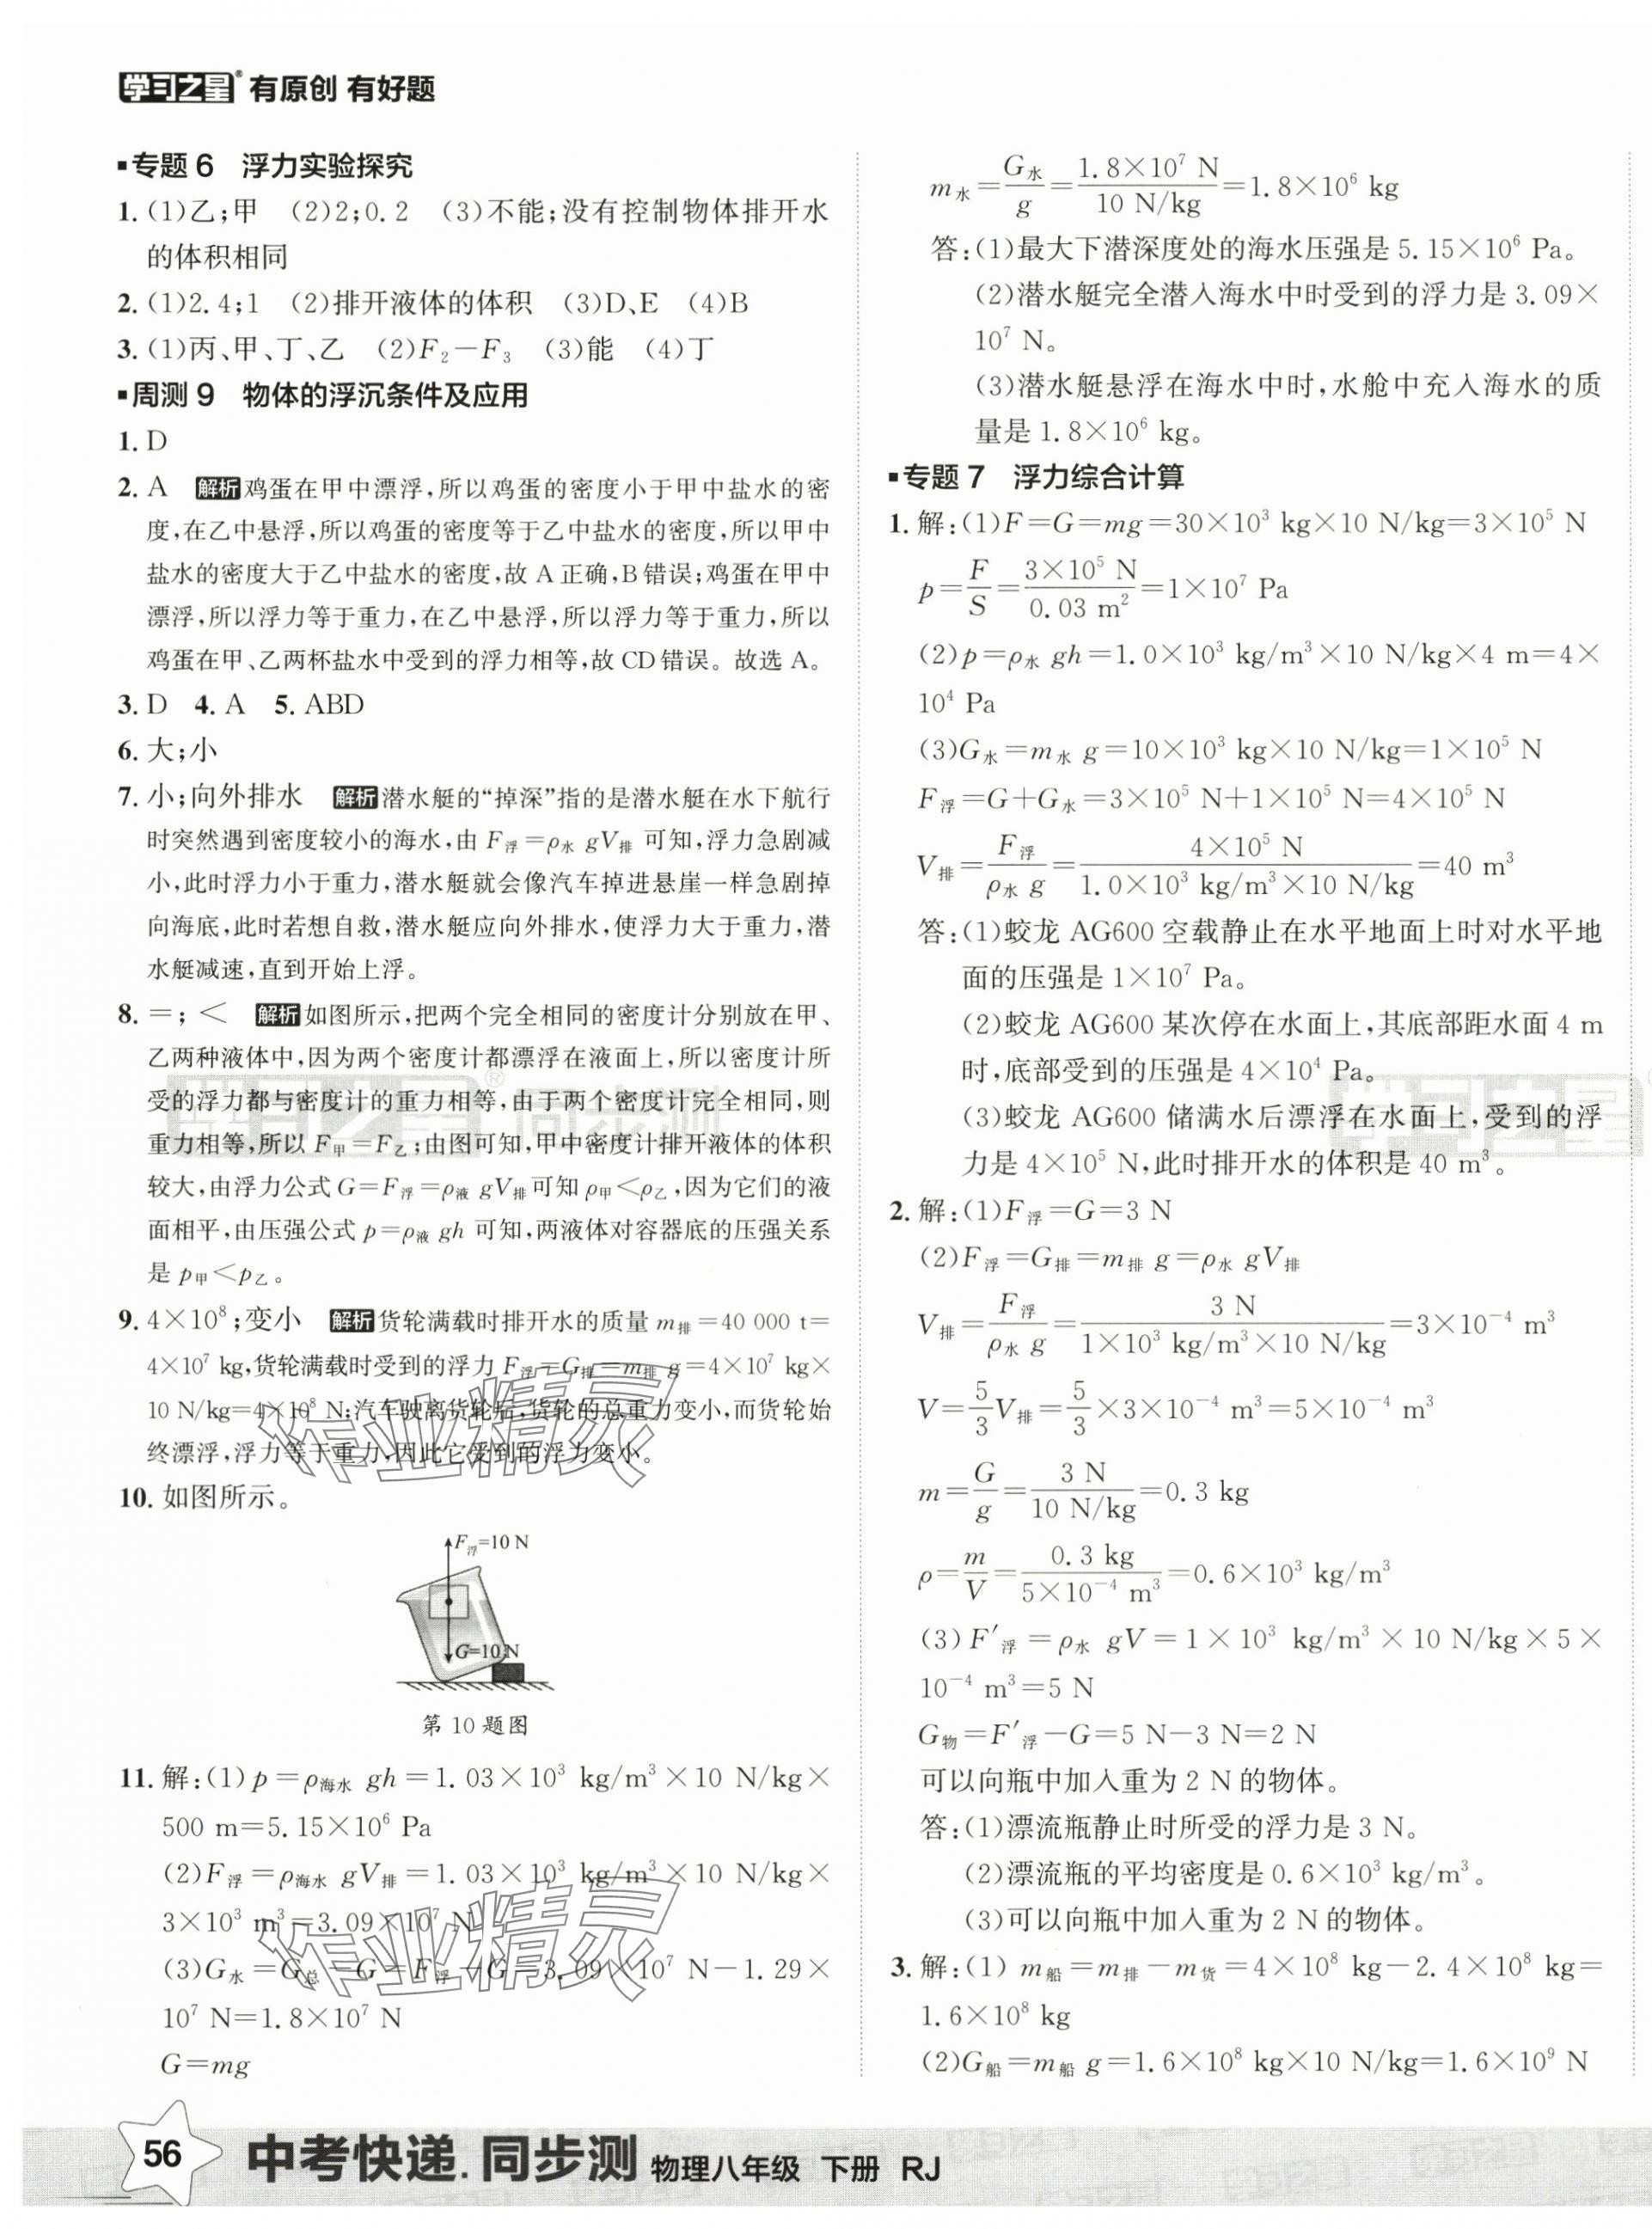 学习之星® 有原创 有好题
▪专题 6 浮力实验探究
1. (1)乙;甲 (2)2;0.2 (3)不能;没有控制物体排开水
的体积相同
2. (1)2.4;1 (2)排开液体的体积 (3)D、E (4)B
3. (1)丙、甲、丁、乙 (2)F₂－F₃ (3)能 (4)丁
▪周测 9 物体的浮沉条件及应用
1. D
2. A 解析 鸡蛋在甲中漂浮,所以鸡蛋的密度小于甲中盐水的密
度,在乙中悬浮,所以鸡蛋的密度等于乙中盐水的密度,所以甲中
盐水的密度大于乙中盐水的密度,故 A 正确,B 错误;鸡蛋在甲中
漂浮,所以浮力等于重力,在乙中悬浮,所以浮力等于重力,所以
鸡蛋在甲、乙两杯盐水中受到的浮力相等,故 CD 错误。故选 A。
3. D 4. A 5. ABD
6. 大;小
7. 小;向外排水 解析 潜水艇的“掉深”指的是潜水艇在水下航行
时突然遇到密度较小的海水,由 F浮=ρ水 gV排 可知,浮力急剧减
小,此时浮力小于重力,潜水艇就会像汽车掉进悬崖一样急剧掉
向海底,此时若想自救,潜水艇应向外排水,使浮力大于重力,潜
水艇减速,直到开始上浮。
8. =;< 解析 如图所示,把两个完全相同的密度计分别放在甲、
乙两种液体中,因为两个密度计都漂浮在液面上,所以密度计所
受的浮力都与密度计的重力相等,由于两个密度计完全相同,则
重力相等,所以 F甲=F乙;由图可知,甲中密度计排开液体的体积
较大,由浮力公式 G=F浮=ρ液 gV排可知 ρ甲<ρ乙,因为它们的液
面相平,由压强公式 p=ρ液 gh 可知,两液体对容器底的压强关系
是 p甲<p乙。
9. 4×10⁸;变小 解析 货轮满载时排开水的质量 m排=40 000 t=
4×10⁷ kg,货轮满载时受到的浮力 F浮=G排=m排 g=4×10⁷ kg×
10 N/kg=4×10⁸ N;汽车驶离货轮后,货轮的总重力变小,而货轮始
终漂浮,浮力等于重力,因此它受到的浮力变小。
10. 如图所示。
F浮=10 N
G=10 N
第 10 题图
11. 解:(1)p=ρ海水 gh=1.03×10³ kg/m³×10 N/kg×
500 m=5.15×10⁶ Pa
(2)F浮=ρ海水 gV排=1.03×10³ kg/m³×10 N/kg×
3×10³ m³=3.09×10⁷ N
(3)G水=G总－G=F浮－G=3.09×10⁷ N－1.29×
10⁷ N=1.8×10⁷ N
G=mg
m水=G水/g=1.8×10⁷ N/10 N/kg=1.8×10⁶ kg
答:(1)最大下潜深度处的海水压强是 5.15×10⁶ Pa。
(2)潜水艇完全潜入海水中时受到的浮力是 3.09×
10⁷ N。
(3)潜水艇悬浮在海水中时,水舱中充入海水的质
量是 1.8×10⁶ kg。
▪专题 7 浮力综合计算
1. 解:(1)F=G=mg=30×10³ kg×10 N/kg=3×10⁵ N
p=F/S=3×10⁵ N/0.03 m²=1×10⁷ Pa
(2)p=ρ水 gh=1.0×10³ kg/m³×10 N/kg×4 m=4×
10⁴ Pa
(3)G水=m水 g=10×10³ kg×10 N/kg=1×10⁵ N
F浮=G+G水=3×10⁵ N+1×10⁵ N=4×10⁵ N
V排=F浮/ρ水 g=4×10⁵ N/1.0×10³ kg/m³×10 N/kg=40 m³
答:(1)蛟龙 AG600 空载静止在水平地面上时对水平地
面的压强是 1×10⁷ Pa。
(2)蛟龙 AG600 某次停在水面上,其底部距水面 4 m
时,底部受到的压强是 4×10⁴ Pa。
(3)蛟龙 AG600 储满水后漂浮在水面上,受到的浮
力是 4×10⁵ N,此时排开水的体积是 40 m³。
2. 解:(1)F浮=G=3 N
(2)F浮=G排=m排 g=ρ水 gV排
V排=F浮/ρ水 g=3 N/1×10³ kg/m³×10 N/kg=3×10⁻⁴ m³
V=5/3V排=5/3×3×10⁻⁴ m³=5×10⁻⁴ m³
m=G/g=3 N/10 N/kg=0.3 kg
ρ=m/V=0.3 kg/5×10⁻⁴ m³=0.6×10³ kg/m³
(3)F′浮=ρ水 gV=1×10³ kg/m³×10 N/kg×5×
10⁻⁴ m³=5 N
G物=F′浮－G=5 N－3 N=2 N
可以向瓶中加入重为 2 N 的物体。
答:(1)漂流瓶静止时所受的浮力是 3 N。
(2)漂流瓶的平均密度是 0.6×10³ kg/m³。
(3)可以向瓶中加入重为 2 N 的物体。
3. 解:(1) m船=m排－m货=4×10⁸ kg－2.4×10⁸ kg=
1.6×10⁸ kg
(2)G船=m船 g=1.6×10⁸ kg×10 N/kg=1.6×10⁹ N
学习之星® 同步测
学习之星
作业精灵
作业精灵
56 中考快递.同步测 物理八年级 下册 RJ